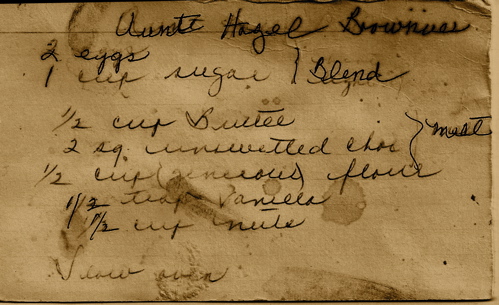 Aunt Hazel Brownies
2 eggs
1 cup sugar } Blend
1/2 cup Butter
2 sq. unswettled choc } melt
1/2 cup (generous) flour
1 1/2 teas vanilla
1/2 cup nuts
Slow oven